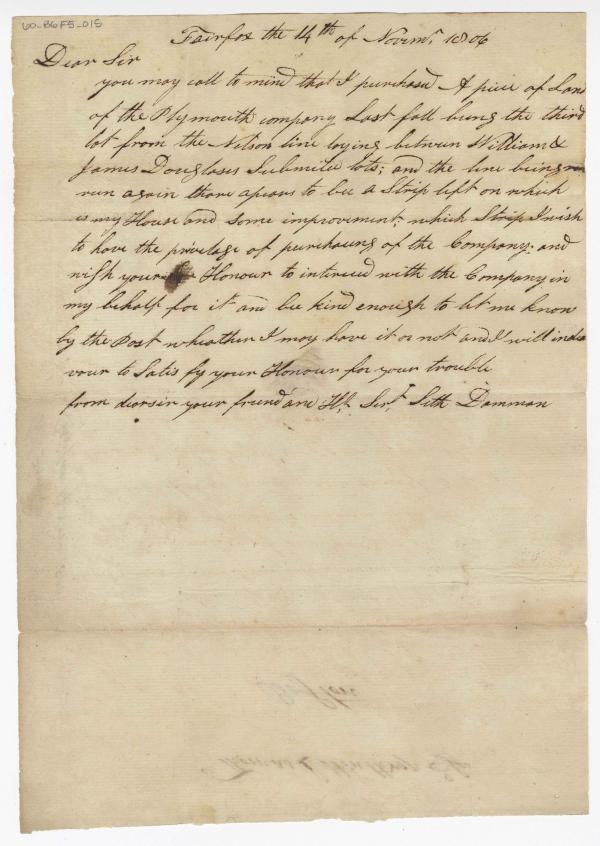 60-B6F5-015
Fairfax the 14th of Novemr 1806
Dear Sir
you may call to mind that I purchased A piece of Land
of the Plymouth company Last fall being the third
lot from the Nelson line loying betwen William &
James Douglases Submited lots; and the line being
run again thare apears to bee a Strip left on which
is my House and some improvement, which Strip I wish
to have the privelage of purchasing of the Company: and
wish your Honour to interced with the Company in
my behalf for it and bee kind enough to let me know
by the Post wheather I may have it or not and I will indea
vour to Satis fy your Honour for your trouble
from dear sir your friend and Hl Servt Seth Damman